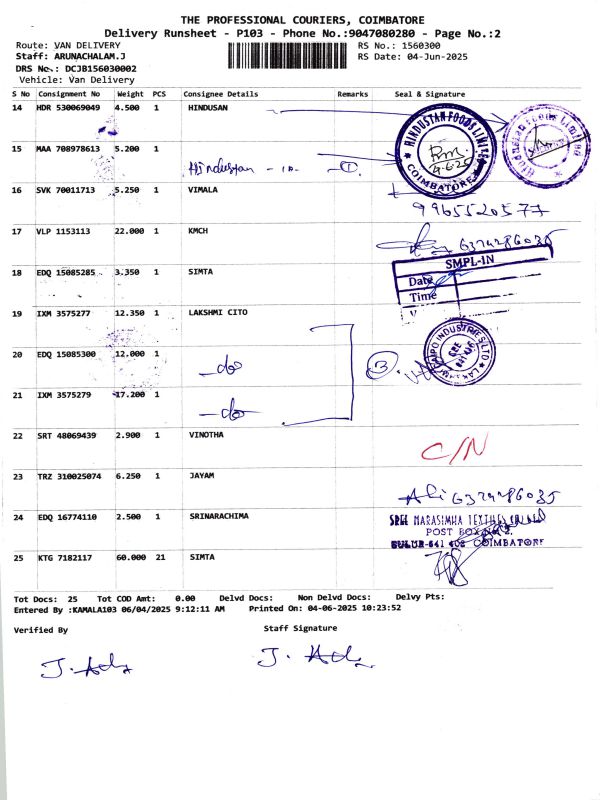 THE PROFESSIONAL COURIERS, COIMBATORE
Delivery Runsheet - P103 - Phone No.:9047080280 - Page No.:2
Route: VAN DELIVERY RS No.: 1560300
Staff: ARUNACHALAM.J RS Date: 04-Jun-2025
DRS No.: DCJB156030002
Vehicle: Van Delivery
S No Consignment No Weight PCS Consignee Details Remarks Seal & Signature
14 HDR 530069049 4.500 1 HINDUSAN
HINDUSTAN FOODS LIMITED
4.6.25
COIMBATORE
15 MAA 708978613 5.200 1
Hindustan
16 SVK 70011713 5.250 1 VIMALA
9965520577
17 VLP 1153113 22.000 1 KMCH
6374286035
18 EDQ 15085285 3.350 1 SIMTA
SMPL-IN
Date
Time
19 IXM 3575277 12.350 1 LAKSHMI CITO
20 EDQ 15085300 12.000 1
-do
3
21 IXM 3575279 17.200 1
-do-
22 SRT 48069439 2.900 1 VINOTHA
C/N
23 TRZ 310025074 6.250 1 JAYAM
6374286035
24 EDQ 16774110 2.500 1 SRINARACHIMA
SREE NARASIMHA TEXTILES
POST BOX
SULUR-641 402 COIMBATORE
25 KTG 7182117 60.000 21 SIMTA
Tot Docs: 25 Tot COD Amt: 0.00 Delvd Docs: Non Delvd Docs: Delvy Pts:
Entered By :KAMALA103 06/04/2025 9:12:11 AM Printed On: 04-06-2025 10:23:52
Verified By Staff Signature